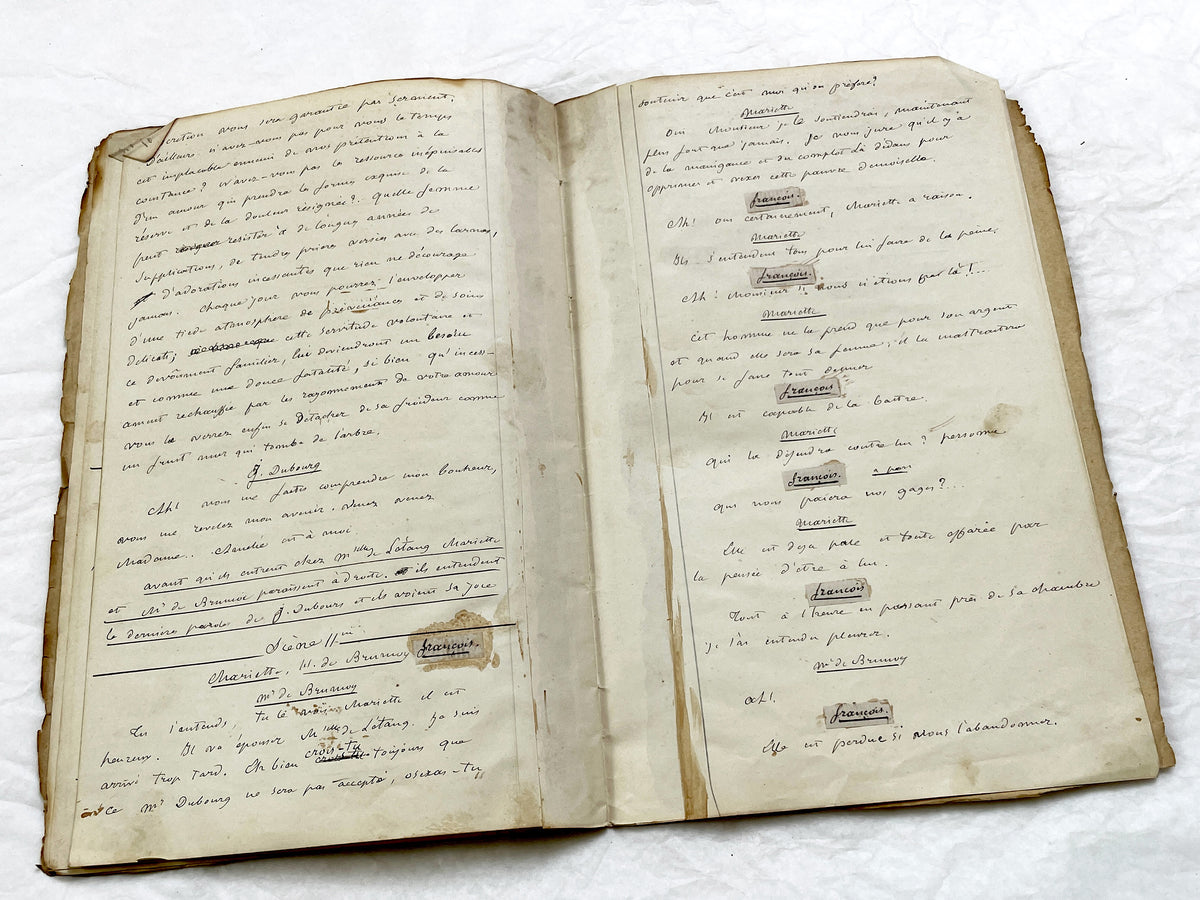 cretion vous sera garantie par serment.
D'ailleurs n'avez-vous pas pour vous le temps
cet implacable ennemi de nos prétentions à la
constance? N'avez-vous pas la ressource inépuisable
d'un amour qui prendra la forme exquise de la
réserve et de la douleur résignée? Quelle femme
peut resister à de longues années de
supplications, de tendres prieres versées avec des larmes,
d'adorations incessantes que rien ne décourage
jamais. Chaque jour vous pourrez l'envelopper
d'une tiede atmosphere de prévenances et de soins
delicats; cette servitude volontaire et
ce devoûment familier, lui deviendront un besoin
et comme une douce fatalité, si bien qu'inces-
amment rechauffée par les rayonnements de votre amour
vous la verrez enfin se détacher de sa froideur comme
un fruit mur qui tombe de l'arbre.
J. Dubourg
Ah! vous me faites comprendre mon bonheur,
vous me revelez mon avenir. Venez venez
Madame.. Amélie est à moi
avant qu'ils entrent chez Mlle de Létang Mariette
et Mr de Brunoy paraissent à droite. ils entendent
la derniere parole de J. Dubourg et ils voient sa joie
Scène 11eme
Mariette, M. de Brunoy François.
Mr de Brunoy
Tu l'entends, tu le vois Mariette il est
heureux. Il va épouser Mlle de Létang. Je suis
arrivé trop tard. Eh bien crois-tu toujours que
ce Mr Dubourg ne sera pas accepté, oseras-tu
soutenir que c'est moi qu'on préfère?
Mariette
Oui Monsieur je le soutiendrai, maintenant
plus fort que jamais. Je vous jure qu'il y a
de la manigance et du complot là dedans pour
opprimer et vexer cette pauvre demoiselle.
François.
Ah! oui certainement, Mariette a raison.
Mariette
Ils s'entendent tous pour lui faire de la peine.
François.
Ah! Monsieur si nous n'étions pas là!...
Mariette
Cet homme ne la prend que pour son argent
et quand elle sera sa femme, il la maltraitera
pour se faire tout donner
François.
Il est capable de la battre.
Mariette
Qui la défendra contre lui? personne
François. à part
qui nous paiera nos gages?...
Mariette
Elle est deja pale et toute effarée par
la pensée d'etre à lui.
François
Tout à l'heure en passant près de sa chambre
je l'ai entendu pleurer.
Mr de Brunoy
Ah!
François.
Elle est perdue si nous l'abandonnons.